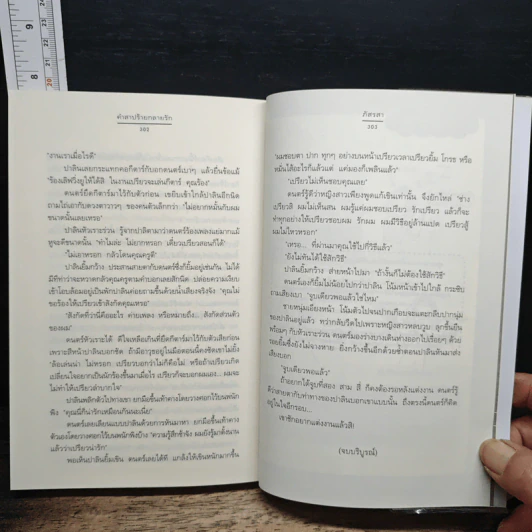 คำสาปร้ายกลายรัก
302
"งานเราเมื่อไรดี"
ปาลินเลยกระแทกคอกีตาร์กับอกดนตร์เบาๆ แล้วยื่นข้อแม้
"ร้องเลิฟวิ่งยูให้ได้สิ ในงานเปรียวจะเล่นกีตาร์ คุณร้อง"
ดนตร์ยึดกีตาร์มาไว้กับตัวก่อน เขยิบเข้าใกล้ปาลินอีกนิด
ถามไถ่เอากับดวงตาวาวๆ ของคนตัวเล็กกว่า "ไม่อยากหมั้นกับผม
ขนาดนั้นเลยเหรอ"
ปาลินหัวเราะร่วน รู้จากปาลิตามาว่าดนตร์ร้องเพลงแย่มากแม้
หูจะดีขนาดนั้น "ทำไมล่ะ ไม่ยากหรอก เดี๋ยวเปรียวสอนก็ได้"
"ไม่เอาหรอก กลัวโดนคุณครูตี"
ปาลินยิ้มกว้าง ประสานสายตากับดนตร์ซึ่งก็ยิ้มอยู่เช่นกัน ไม่ได้
มีทีท่าว่าจะหวาดกลัวคุณครูตามคำบอกเลยสักนิด
เข้าโอบล้อมอยู่เป็นพักปาลินค่อยถามขึ้นด้วยน้ำเสียงจริงจัง "คุณไม่
ขอร้องให้เปรียวเข้าสังกัดคุณเหรอ"
"สังกัดที่ว่านี่คืออะไร ค่ายเพลง หรือหมายถึง... สังกัดส่วนตัว
ของผม"
ดนตร์หัวเราะได้ ดีใจเหลือเกินที่ยึดกีตาร์มาไว้กับตัวเสียก่อน
เพราะสีหน้าปาลินบอกชัด ถ้ามีอาวุธอยู่ในมือตอนนี้คงซัดเขาไม่ยั้ง
"ล้อเล่นน่า ไม่หรอก เปรียวบอกว่าไม่ก็คือไม่ หรือถ้าเปรียวเกิด
เปลี่ยนใจอยากเป็นนักร้องขึ้นมาเมื่อไร เปรียวก็จะบอกผมเอง... ผมจะ
ไม่ทำให้เปรียวลำบากใจ"
ปาลินพลิกตัวไปทางเขา ยกมือขึ้นเท้าคางโดยวางศอกไว้บนพนัก
พิง "คุณนี่ก็น่ารักเหมือนกันนะเนี่ย"
ดนตร์เลยเลียนแบบปาลินด้วยการหันมาหา ยกมือขึ้นเท้าคาง
ตัวเองโดยวางศอกไว้บนพนักพิงบ้าง "ความรู้สึกช้าจัง ผมยังรู้มาตั้งนาน
แล้วว่าเปรียวน่ารัก"
พอเห็นปาลินยิ้มเขิน ดนตร์เลยได้ที แกล้งให้เขินหนักมากขึ้น
ภัสรสา
303
"ผมชอบตา ปาก ทุกๆ อย่างบนหน้าเปรียวเวลาเปรียวยิ้ม โกรธ หรือ
หมั่นไส้อะไรก็แล้วแต่ แต่มองก็เพลินแล้ว"
"เปรียวไม่เห็นชอบคุณเลย"
ดนตร์รู้ดีว่าหญิงสาวเพียงพูดแก้เขินเท่านั้น จึงยักไหล่ "ช่าง
เปรียวสิ ผมไม่เห็นสน ผมรู้แค่ผมชอบเปรียว รักเปรียว แล้วก็จะ
ทำทุกอย่างให้เปรียวชอบผม รักผม ผมมีวิธีอยู่ล้านแปด เปรียวสู้
ผมไม่ไหวหรอก"
"เหรอ... ที่ผ่านมาคุณใช้ไปกี่วิธีแล้ว"
"ยังไม่ทันได้ใช้สักวิธี"
ปาลินยิ้มกว้าง ส่ายหน้าไปมา "ถ้างั้นก็ไม่ต้องใช้สักวิธี"
ดนตร์เองก็ยิ้มไม่น้อยไปกว่าปาลิน โน้มหน้าเข้าไปใกล้ กระซิบ
ถามเสียงเบา "จูบเดียวพอแล้วใช่ไหม"
ชายหนุ่มเอียงหน้า โน้มตัวไปจนปากเกือบจะแตะกลีบปากนุ่ม
ของปาลินอยู่แล้ว ทว่ากลับวืดไปเพราะหญิงสาวหลบวูบ ลุกขึ้นยืน
พร้อมๆ กับหัวเราะร่วน ดนตร์มองร่างบางเดินห่างออกไปเรื่อยๆ ด้วย
รอยยิ้มซึ่งยังไม่จางหาย ยิ่งกว้างขึ้นอีกด้วยซ้ำตอนปาลินหันมาส่ง
เสียงบอก
"จูบเดียวพอแล้ว"
ถ้าอยากได้จูบที่สอง สาม สี่ ก็คงต้องรอหลังแต่งงาน ดนตร์รู้
ว่าสายตากับท่าทางของปาลินบอกเขาแบบนั้น ถึงตรงนี้ดนตร์ก็คิด
อยู่ในใจอีกรอบ...
เขาชักอยากแต่งงานแล้วสิ!
(จบบริบูรณ์)